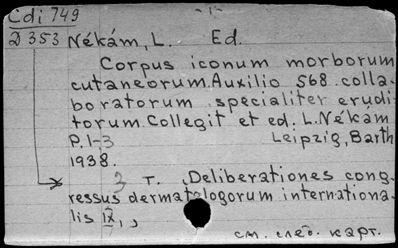 Cdi 749 -1-
D 353 Nékám, L. Ed.
Corpus iconum morborum
cutaneorum. Auxilio 568 colla-
boratorum specialiter erudi-
torum. Collegit et ed. L. Nékám
P. 1-3 Leipzig, Barth
1938.
3 т. Deliberationes cong-
ressus dermatologorum internationa-
lis IX, 1
см. след. карт.